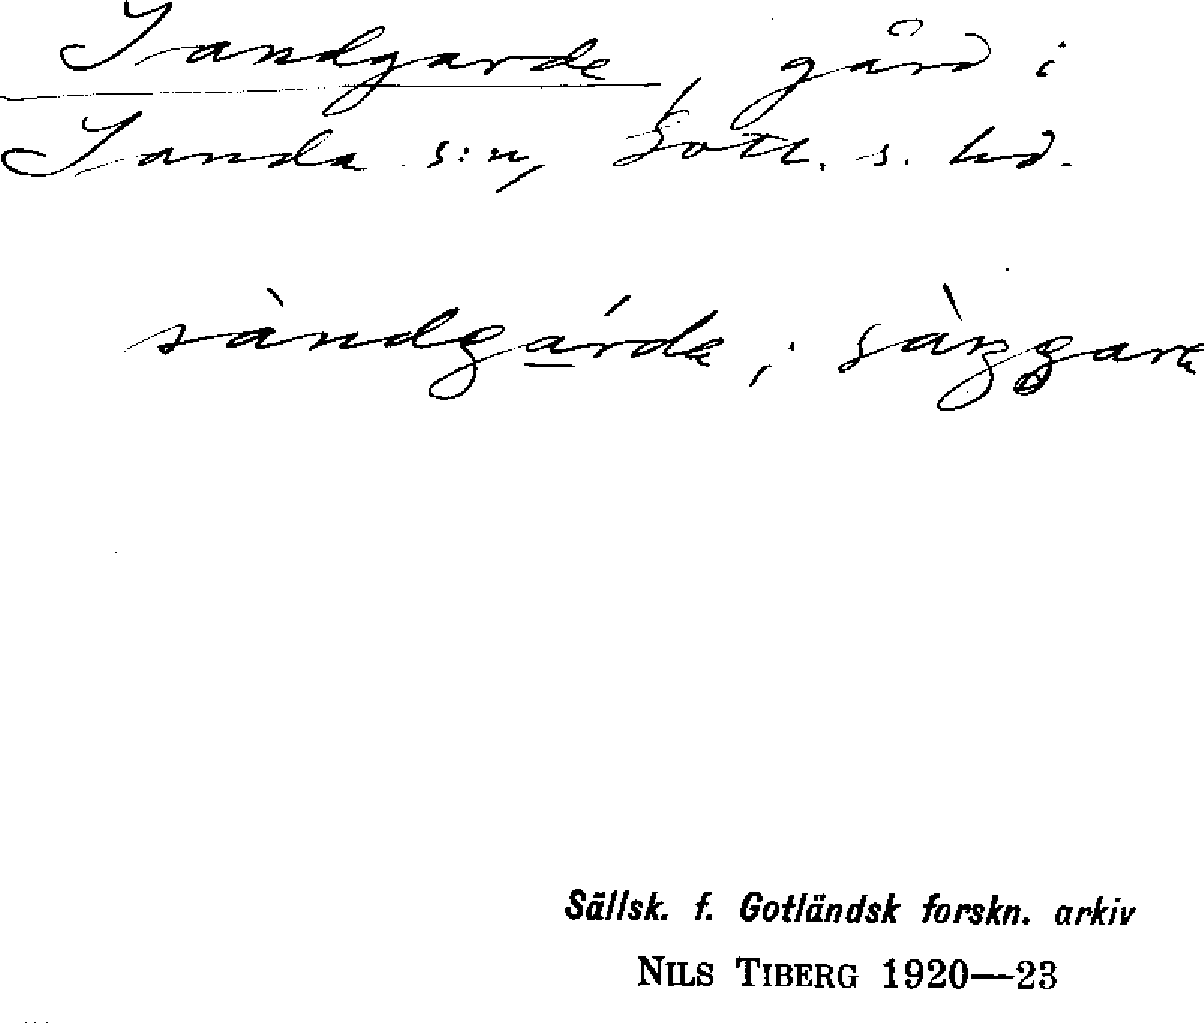 Sandgarde, gård i
Sanda s:n, Gotl. s. hd.
sàndgárda; sàŋgara
Sällsk. f. Gotländsk forskn. arkiv
NILS TIBERG 1920—23